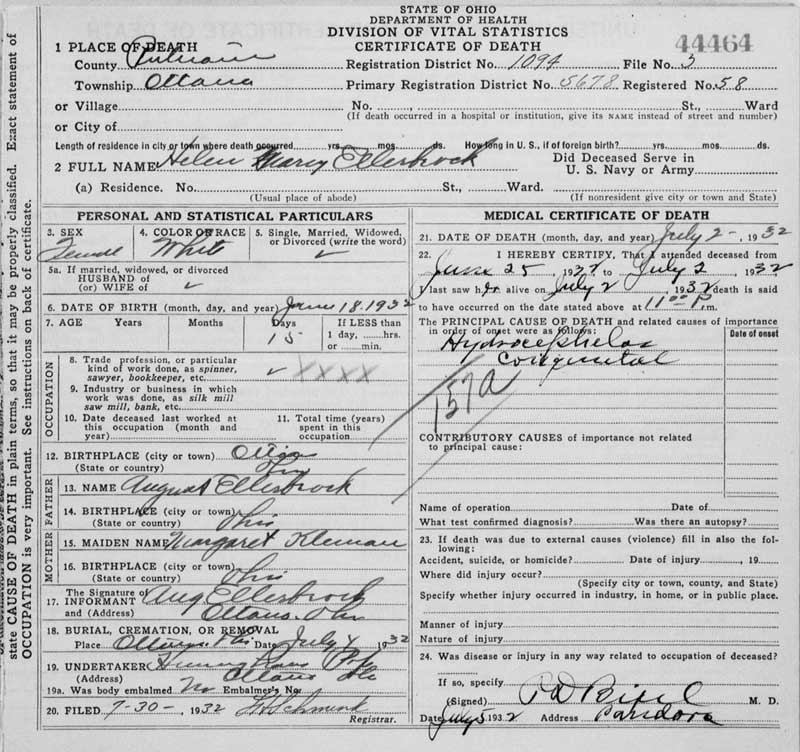 STATE OF OHIO
DEPARTMENT OF HEALTH
DIVISION OF VITAL STATISTICS
CERTIFICATE OF DEATH
44464
1 PLACE OF DEATH
County Putnam Registration District No. 1094 File No. 3
Township Ottawa Primary Registration District No. 5678 Registered No. 58
or Village No. St., Ward
(If death occurred in a hospital or institution, give its NAME instead of street and number)
or City of
Length of residence in city or town where death occurred yrs. mos. ds. How long in U. S., if of foreign birth? yrs. mos. ds.
2 FULL NAME Helen Mary Ellerbrock Did Deceased Serve in
U. S. Navy or Army
(a) Residence. No. St., Ward.
(Usual place of abode) (If nonresident give city or town and State)
state CAUSE OF DEATH in plain terms, so that it may be properly classified. Exact statement of
OCCUPATION is very important. See instructions on back of certificate.
PERSONAL AND STATISTICAL PARTICULARS
3. SEX 4. COLOR OR RACE 5. Single, Married, Widowed,
or Divorced (write the word)
Female White ✓
5a. If married, widowed, or divorced
HUSBAND of
(or) WIFE of ✓
6. DATE OF BIRTH (month, day, and year) June 18. 1932
7. AGE Years Months Days If LESS than
15 1 day, hrs.
or min.
OCCUPATION
8. Trade, profession, or particular
kind of work done, as spinner,
sawyer, bookkeeper, etc. ✓ XXXX
9. Industry or business in which
work was done, as silk mill
saw mill, bank, etc.
10. Date deceased last worked at
this occupation (month and
year)
11. Total time (years)
spent in this
occupation
12. BIRTHPLACE (city or town)
(State or country) Ohio
FATHER
13. NAME August Ellerbrock
14. BIRTHPLACE (city or town)
(State or country) Ohio
MOTHER
15. MAIDEN NAME Margaret Kleman
16. BIRTHPLACE (city or town)
(State or country) Ohio
17. The Signature of
INFORMANT Aug Ellerbrock
and (Address) Ottawa, Ohio
18. BURIAL, CREMATION, OR REMOVAL
Place Ottawa, Ohio Date July 4 1932
19. UNDERTAKER
(Address) Ottawa Ohio
19a. Was body embalmed No Embalmer's No.
20. FILED 7-30-, 1932
Registrar.
MEDICAL CERTIFICATE OF DEATH
21. DATE OF DEATH (month, day, and year) July 2-, 1932
22. I HEREBY CERTIFY, That I attended deceased from
June 25, 1932 to July 2, 1932
I last saw her alive on July 2, 1932 death is said
to have occurred on the date stated above at 11 00 P.m.
The PRINCIPAL CAUSE OF DEATH and related causes of importance
in order of onset were as follows:
Date of onset
Hydrocephelas
Congenital
157a
CONTRIBUTORY CAUSES of importance not related
to principal cause:
Name of operation Date of
What test confirmed diagnosis? Was there an autopsy?
23. If death was due to external causes (violence) fill in also the fol-
lowing:
Accident, suicide, or homicide? Date of injury, 19
Where did injury occur?
(Specify city or town, county, and State)
Specify whether injury occurred in industry, in home, or in public place.
Manner of injury
Nature of injury
24. Was disease or injury in any way related to occupation of deceased?
If so, specify
(Signed) M. D.
Date July 5 1932 Address Pandora